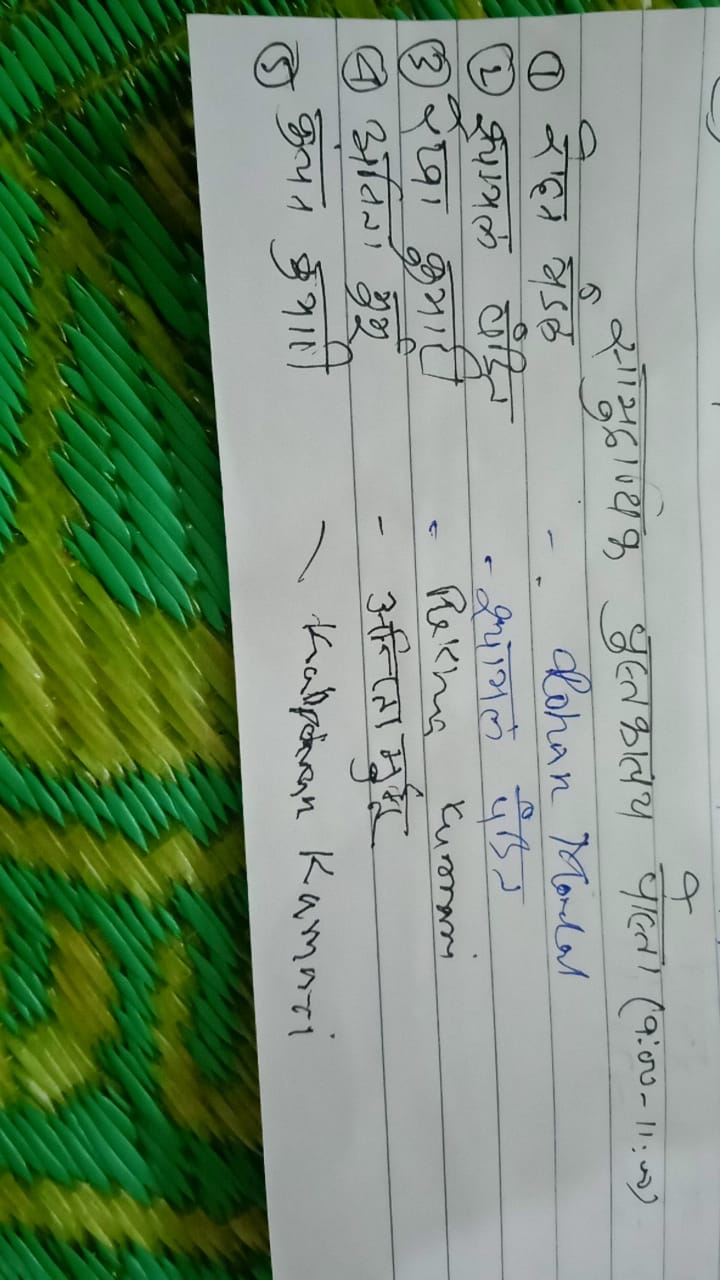 सामुदायिक पुस्तकालय (9:00 - 11:00)
① मंडल - Rohan Mondal
② श्यामल पंडित - श्यामल पंडित
③ रेखा कुमारी - Rekha Kumari
④ अनिता मुर्मू - अनिता मुर्मू
⑤ कुमारी - Kumari